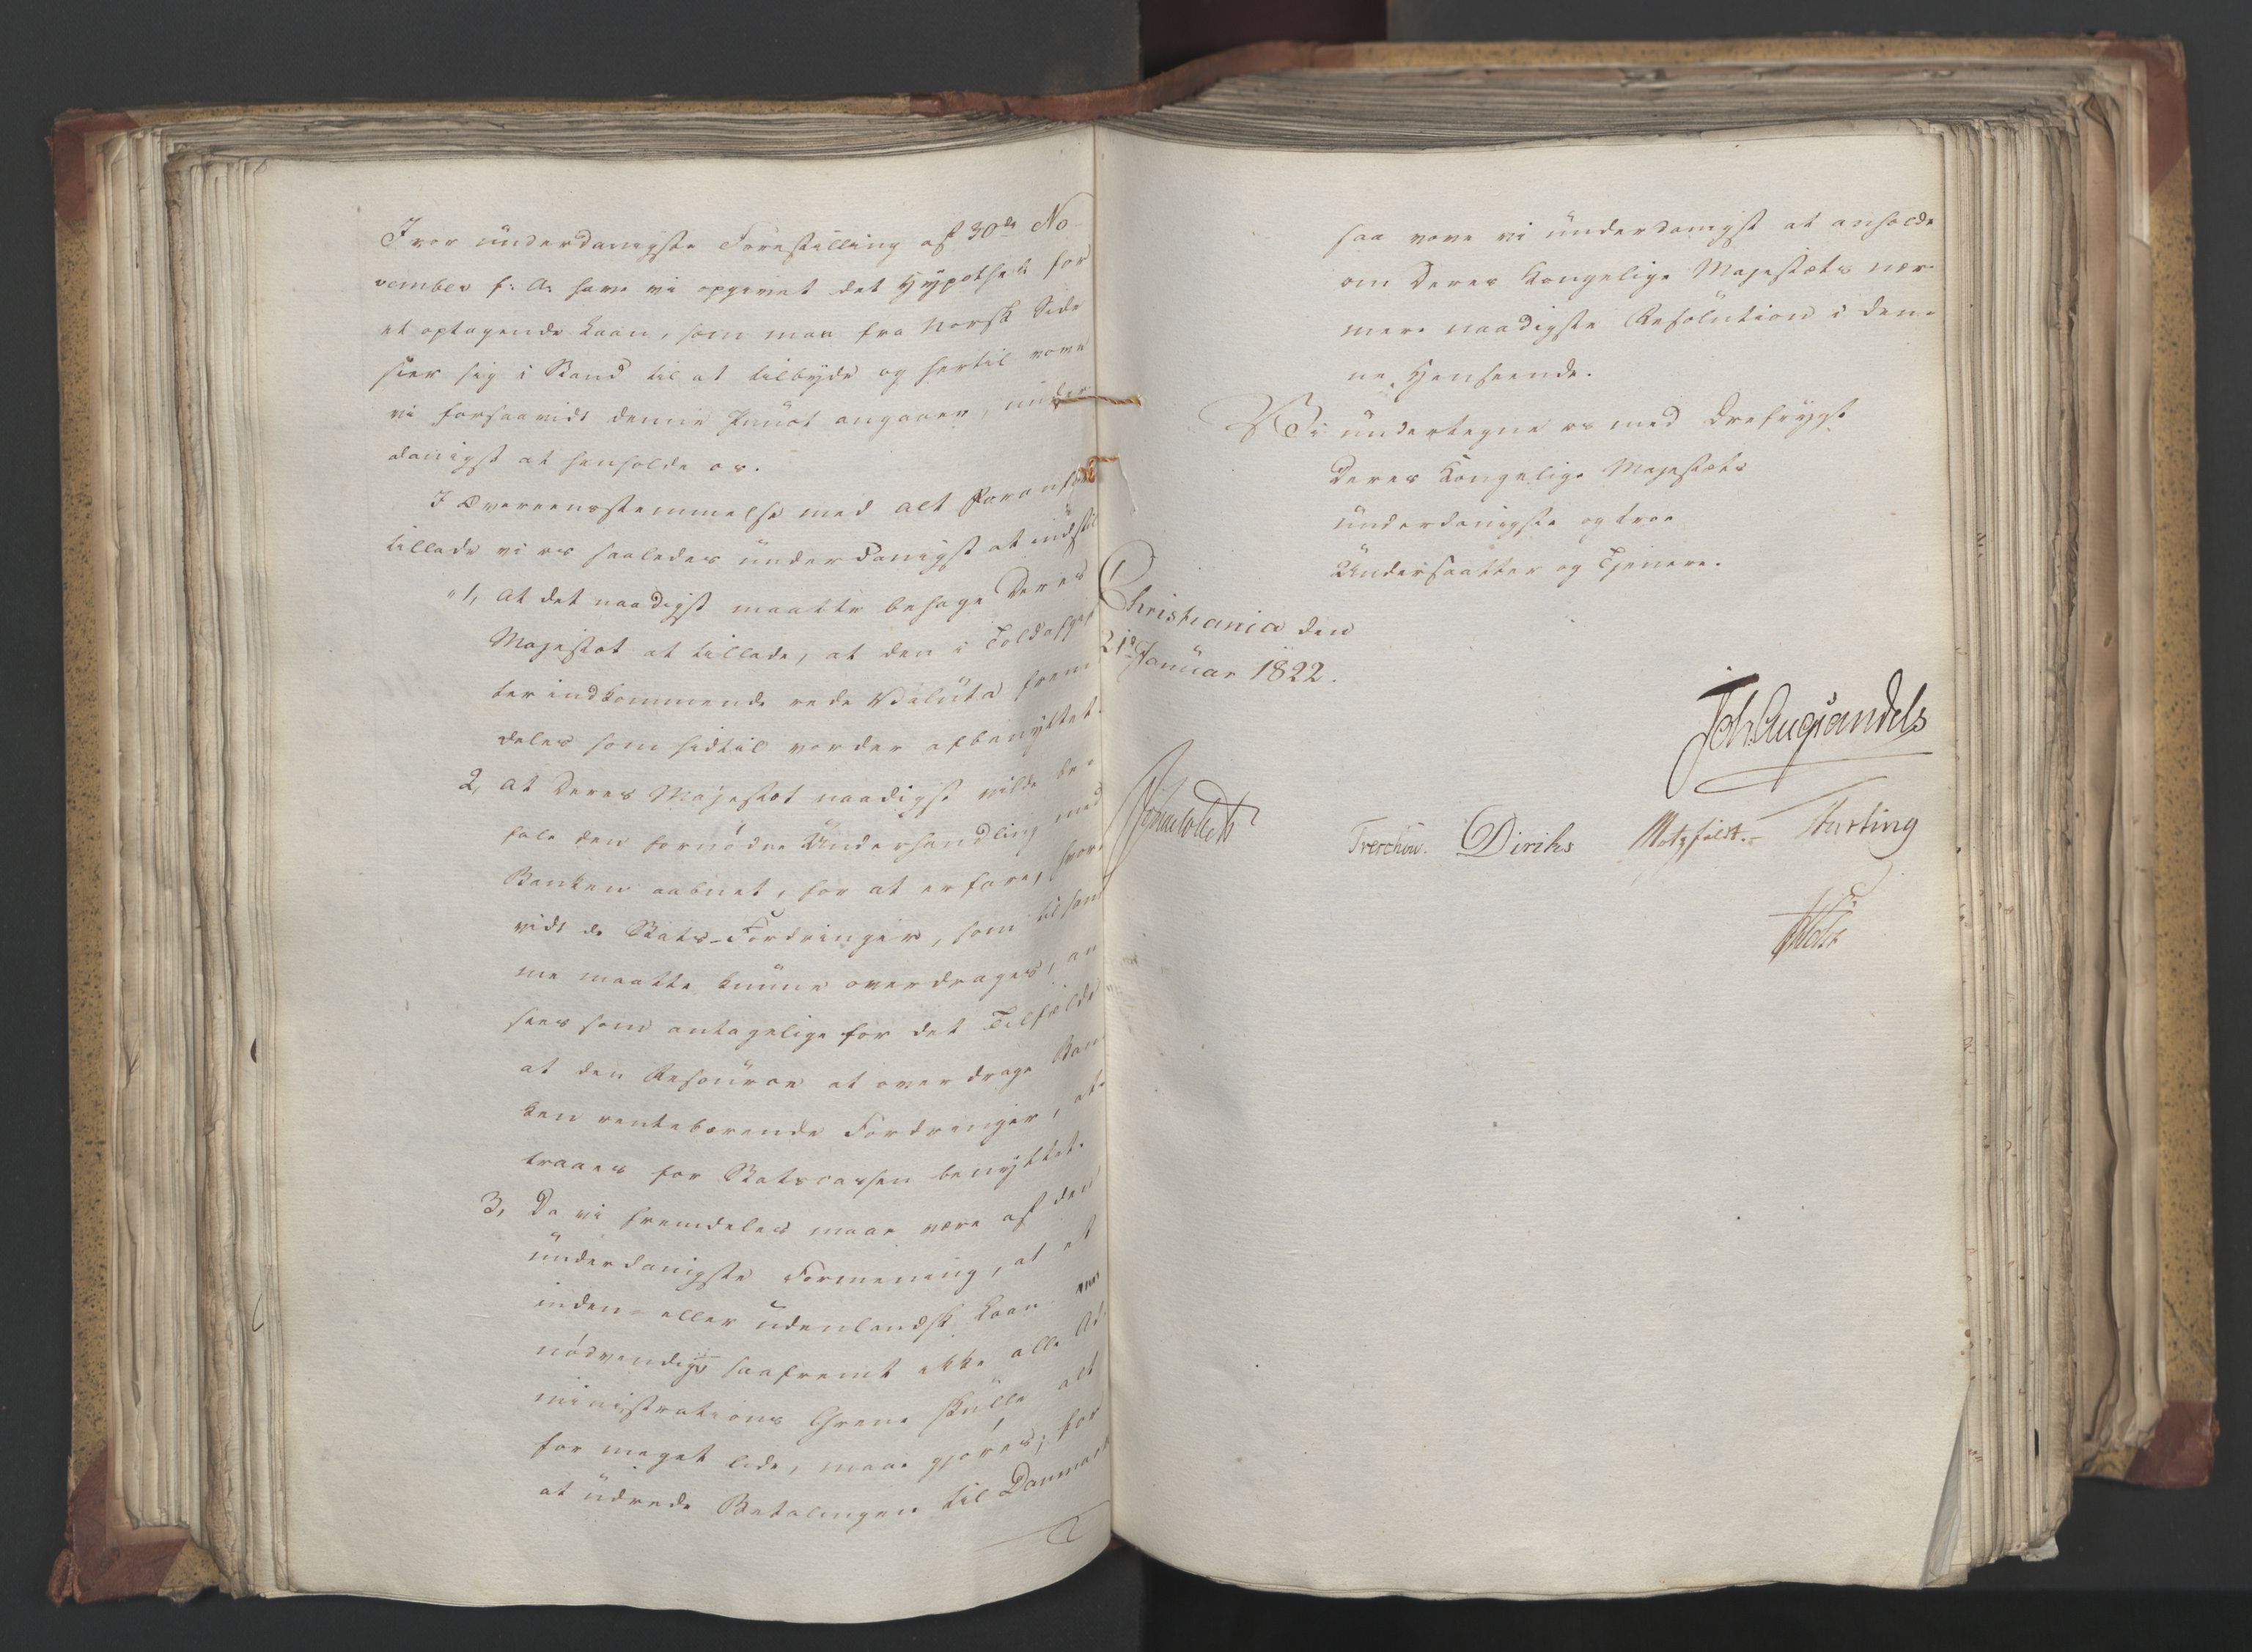 I vor underdanigste Forestilling af 30de No-
vember f: A: have vi opgivet det Hypothek for
et optagende Laan, som man fra Norsk Side
seer sig i Stand til at tilbyde og hertil vove
vi forsaavidt denne Punct angaaer, under
danigst at henholde os.
I Overeensstemmelse med alt Foranf
tillade vi os saaledes underdanigst at indstil
"1, At det naadigst maatte behage Deres
Majestæt at tillade, at den i Toldafgif
ter indkommende rede Valuta frem
deles som hidtil vorder afbenyttet.
2, At Deres Majestæt naadigst vilde be-
fale den fornødne Underhandling med
Banken aabnet, for at erfare, hvor
vidt de Stats-Fordringer, som til sam
me maatte kunne overdrages, an
sees som antagelige for det Tilfælde
at den Resource at overdrage Ban
ken rentebærende Fordringer, at-
traaes for Statscassen benyttet.
3, Da vi fremdeles maae være af den
underdanigste Formening, at et
inden- eller udenlandsk Laan
nødvendigt saafremt ikke alle Ad-
ministrations Grene skulle alt
for meget lide, maae gjøres, for
at udrede Betalingen til Danmark
saa vove vi underdanigst at anholde
om Deres Kongelige Majestæts nær-
mere naadigste Resolution i den-
ne Henseende.
Vi undertegne os med Ærefrygt
Deres Kongelige Majestæts
underdanigste og troe
Undersaatter og Tjenere.
Christiania den
21de Januar 1822.
Joh. Aug Sandels
Jonas Collett
Treschow. Diriks Motzfeldt. Hurting
Holst